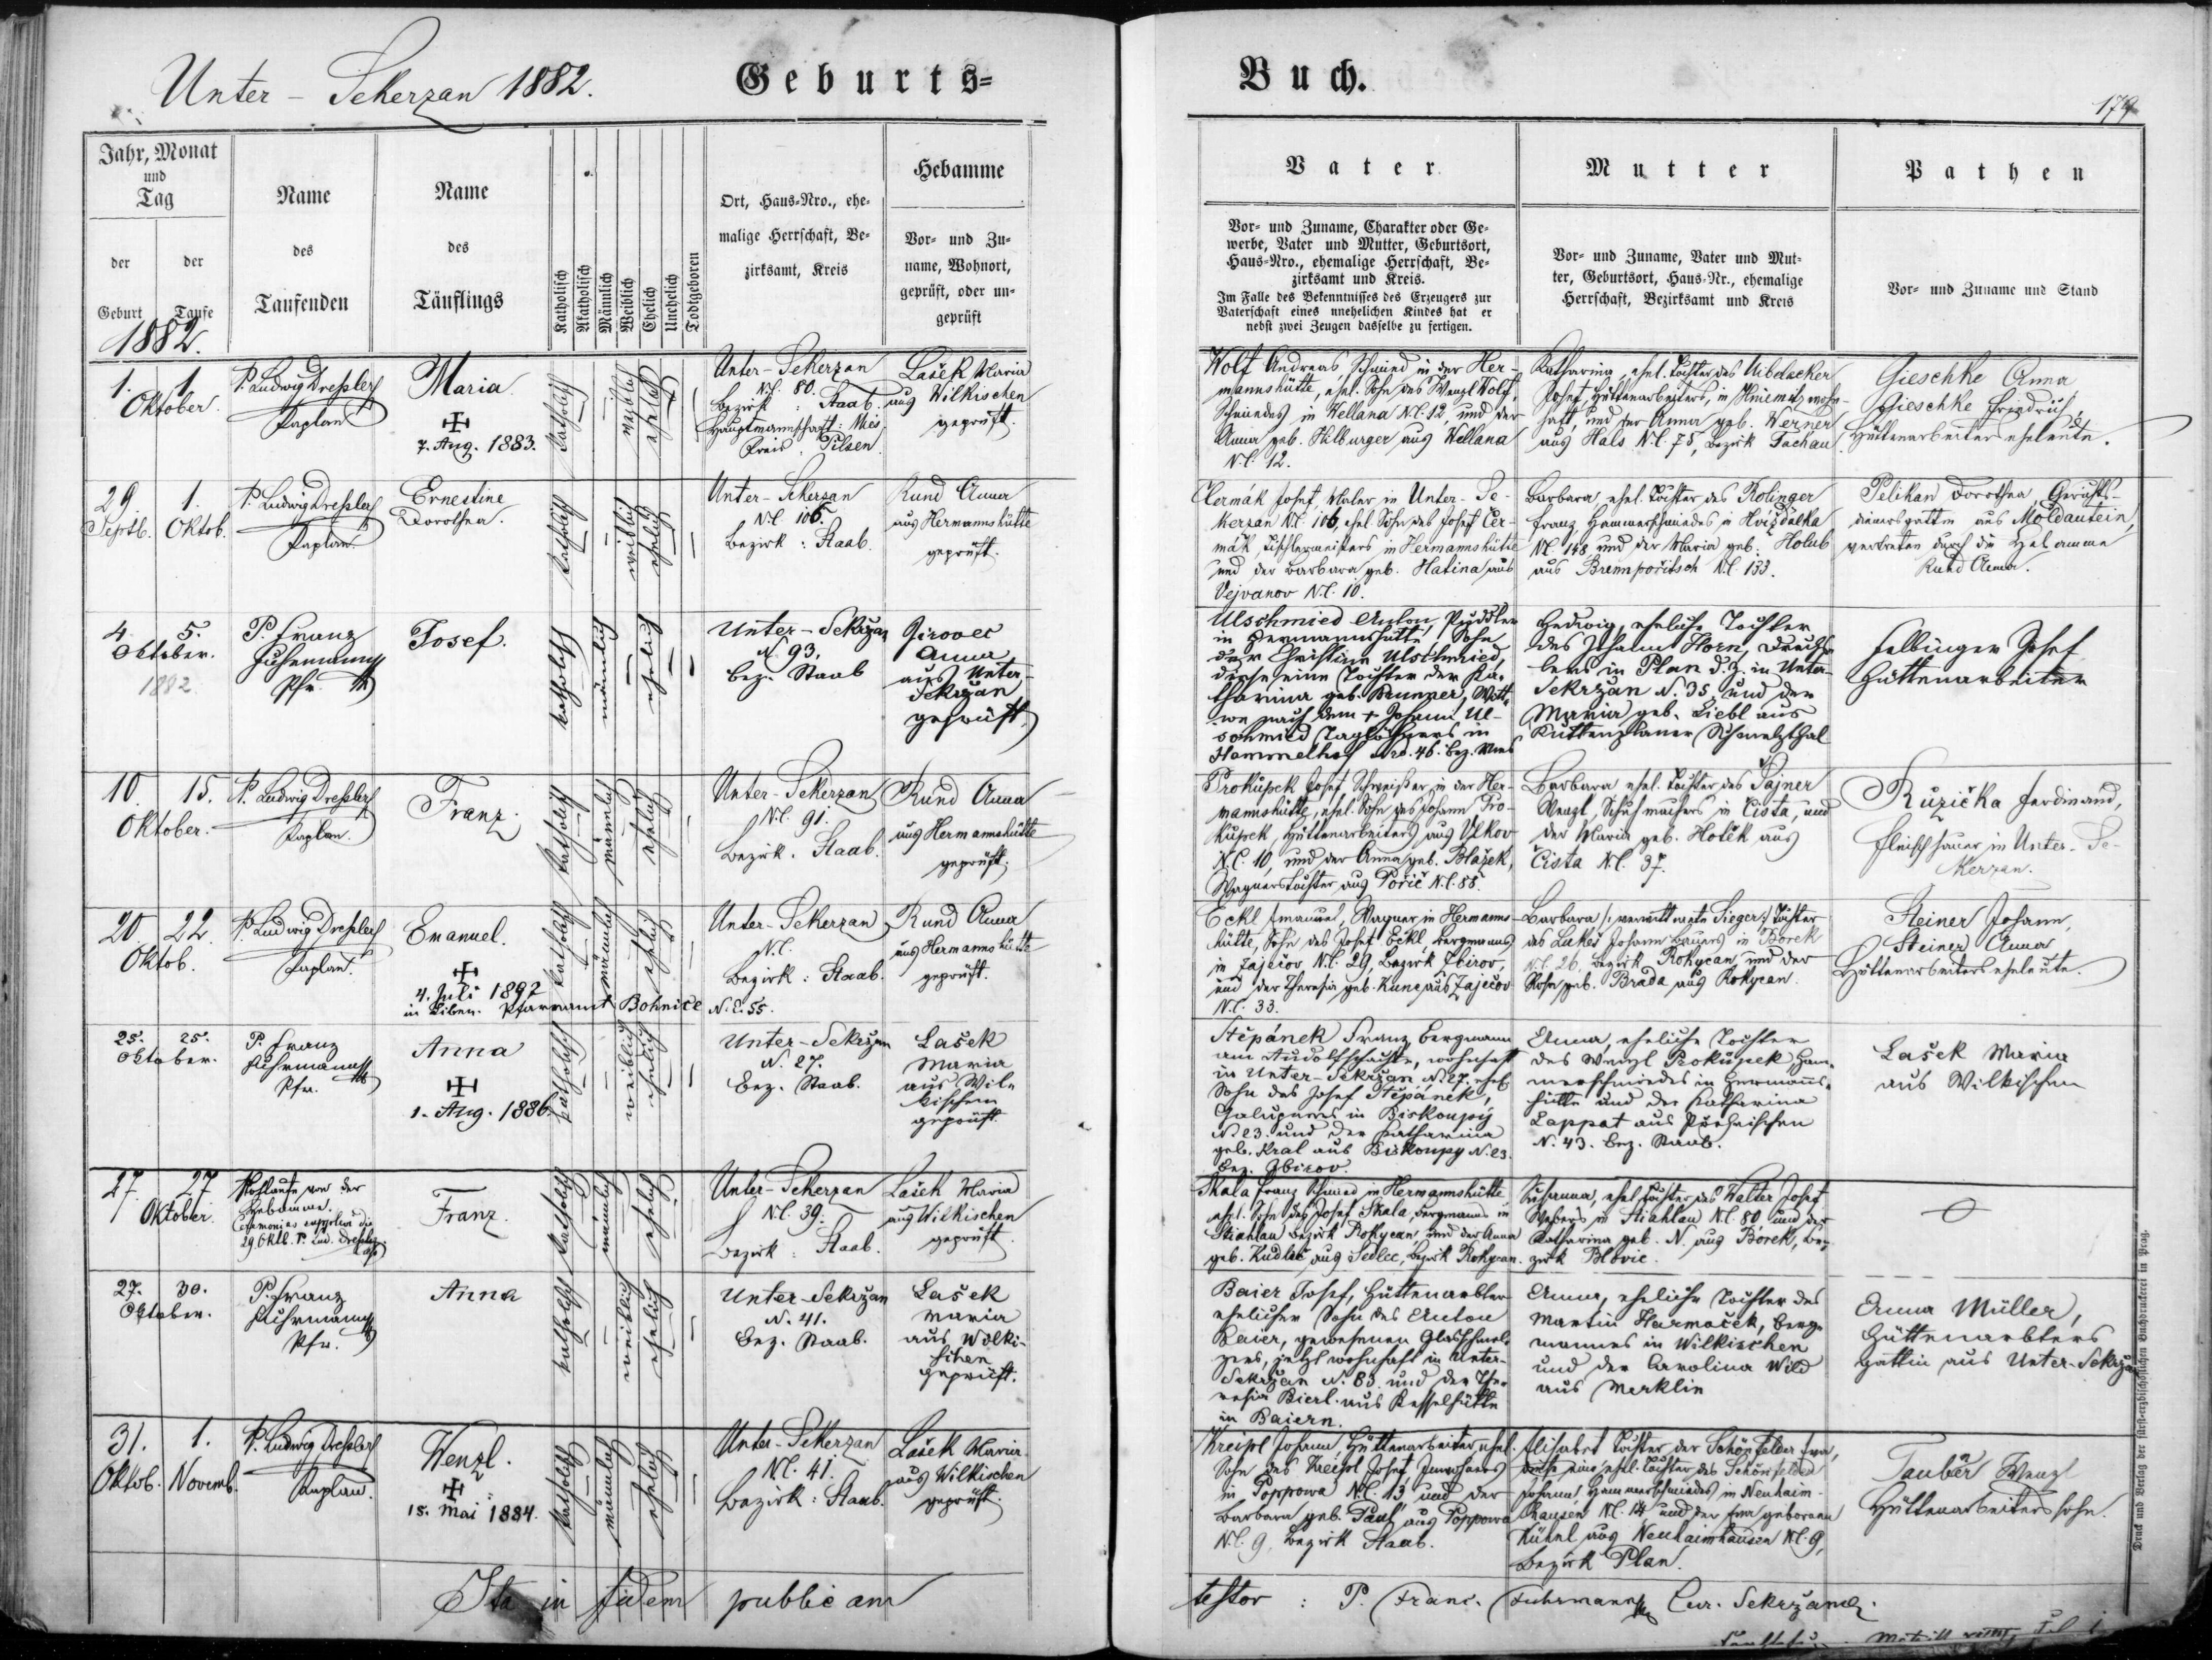 Unter - Sekerzan 1882.
Geburts-
Buch.
179
Jahr, Monat
und
Tag
der
Geburt
der
Taufe
1882.
Name
des
Taufenden
Name
des
Täuflings
Katholisch
Akatholisch
Männlich
Weiblich
Ehelich
Unehelich
Todtgeboren
Ort, Haus-Nro., ehe-
malige Herrschaft, Be-
zirksamt, Kreis
Hebamme
Vor- und Zu-
name, Wohnort,
geprüft, oder un-
geprüft
Vater
Vor- und Zuname, Charakter oder Ge-
werbe, Vater und Mutter, Geburtsort,
Haus-Nro., ehemalige Herrschaft, Be-
zirksamt und Kreis.
Im Falle des Bekenntnisses des Erzeugers zur
Vaterschaft eines unehelichen Kindes hat er
nebst zwei Zeugen dasselbe zu fertigen.
Mutter
Vor- und Zuname, Vater und Mut-
ter, Geburtsort, Haus-Nr., ehemalige
Herrschaft, Bezirksamt und Kreis
Pathen
Vor- und Zuname und Stand
1. 1.
Oktober.
P. Ludwig Dreßler
Kaplan
Maria
7. Aug. 1883.
katholisch
weiblich
ehelich
Unter-Sekerzan
N.C. 80.
Bezirk : Staab.
Hauptmannschaft : Mies
Kreis : Pilsen
Lašek Maria
aus Wilkischen
geprüft.
Wolf Andreas Schmied in der Her-
mannshütte, ehel. Sohn des Wenzl Wolf,
Schmiedes in Wellana N.C. 12 und der
Anna geb. Hilburger aus Wellana
N.C. 12.
Katharina, ehel. Tochter des Uibelacker
Josef, Hüttenarbeiters, in Hniemitz wohn-
haft, und der Anna geb. Werner
aus Hals N.C. 75, Bezirk Tachau
Gieschke Anna
Gieschke Friedrich,
Hüttenarbeiterseheleute.
29. 1.
Septb. Oktob.
P. Ludwig Dreßler
Kaplan
Ernestine
Dorothea.
katholisch
weiblich
ehelich
Unter-Sekerzan
N.C. 106.
Bezirk : Staab.
Rund Anna
aus Hermannshütte
geprüft.
Čermák Josef, Maler in Unter-Se-
kerzan N.C. 106, ehel. Sohn des Josef Čer-
mák Tischlermeisters in Hermannshütte
und der Barbara geb. Hatina aus
Vejvanov N.C. 10.
Barbara, ehel. Tochter des Rolinger
Franz, Hammerschmiedes in Hvížďalka
N.C. 148 und der Maria geb. Holub
aus Brennpořitsch N.C. 133.
Pelikan Dorothea, Gerichts-
dienersgattin aus Moldautein,
vertreten durch die Hebamme
Rund Anna.
4. 5.
Oktober.
1882
P. Franz
Fuhrmann
Pfr.
Josef.
katholisch
männlich
ehelich
Unter-Sekržan
N. 93.
Bez. Staab
Jirovec
Anna
aus Unter-
Sekržan
geprüft.
Ulschmied Anton, Puddler
in Hermannshütte, Sohn
der Christine Ulschmied,
diese eine Tochter der Ka-
tharina geb. Brunner, Witt-
we nach dem + Johann Ul-
schmied Taglöhners in
Hammelhof Nro. 46. Bez. Mies
Hedwig, eheliche Tochter
des Johann Horn,
in Plan d. Z. in Unter-
Sekržan N. 35, und der
Maria geb. Liebl aus
Kuttenplaner Schmelzthal
Felbinger Josef
Hüttenarbeiter
10. 15.
Oktober.
P. Ludwig Dreßler
Kaplan.
Franz.
katholisch
männlich
ehelich
Unter-Sekerzan
N.C. 91.
Bezirk. Staab.
Rund Anna
aus Hermannshütte
geprüft.
Prokůpek Josef, Schweißer in der Her-
mannshütte, ehel. Sohn des Johann Pro-
kůpek, Hüttenarbeiters aus Vlkov
N.C. 10, und der Anna geb. Blažek,
Wagnerstochter aus Pořič N.C. 88.
Barbara ehel. Tochter des Pajner
Wenzl, Schuhmachers in Čista, und
der Maria geb. Holček aus
Čista N.C. 37.
Ružička Ferdinand,
Fleischhauer in Unter-Se-
kerzan.
20. 22.
Oktob.
P. Ludwig Dreßler
Kaplan.
Emanuel.
4. Juli 1892
in Liben. Pfarramt Bohnice N.C. 55.
katholisch
männlich
ehelich
Unter-Sekerzan
N.C.
Bezirk : Staab.
Rund Anna
aus Hermannshütte
geprüft.
Eckl Emanuel, Wagner in Hermanns-
hütte, Sohn des Josef Eckl, Bergmanns
in Zaječov N.C. 29, Bezirk Zbirov,
und der Theresia geb. Kunc aus Zaječov
N.C. 33.
Barbara /: verwittwete Sieger :/ Tochter
des Lukeš Johann Bauers in Borek
N.C. 26, Bezirk Rokycan, und der
Rosa geb. Brada aus Rokycan.
Steiner Johann,
Steiner Anna
Hüttenarbeiterseheleute.
25. 25.
Oktober.
P. Franz
Fuhrmann
Pfr.
Anna
1. Aug. 1886.
katholisch
weiblich
ehelich
Unter-Sekržan
N. 27.
Bez. Staab.
Lašek
Maria
aus Wil-
kischen
geprüft.
Štěpánek Franz, Bergmann
am Rudolfschachte, wohnhaft
in Unter-Sekržan N. 27. ehel.
Sohn des Josef Štěpánek,
Chalupners in Biskoupy
N. 23. und der Katharina
geb. Kral aus Biskoupy N. 23.
Bez. Zbirov.
Anna, eheliche Tochter
des Wenzl Prokůpek, Ham-
merschmiedes in Hermanns-
hütte und der Katharina
Lappat aus
N. 43. Bez. Staab.
Lašek Maria
aus Wilkischen
27. 27
Oktober.
Nothtaufe von der
Hebamme.
Ceremonias supplevi die
29. Oktb. P. Lud. Dreßler
Kap.
Franz.
katholisch
männlich
ehelich
Unter-Sekerzan
N.C. 39.
Bezirk : Staab.
Lašek Maria
aus Wilkischen
geprüft.
Skala Franz Schmied in Hermannshütte
ehel. Sohn des Josef Skala, Bergmanns in
Stiahlau Bezirk Rokycan, und der Anna
geb. Kudlač aus Sedlec, Bezirk Rokycan.
Susanna, ehel. Tochter des Walter Josef
Webers in Stiahlau N.C. 80, und der
Katharina geb. N. aus Borek, Be-
zirk Blovic.
27. 30.
Oktober.
P. Franz
Fuhrmann
Pfr.
Anna
katholisch
weiblich
ehelich
Unter-Sekržan
N. 41.
Bez. Staab.
Lašek
Maria
aus Wilki-
schen
geprüft.
Baier Josef, Hüttenarbter
ehelicher Sohn des Anton
Baier, gewesenen Glasschmel-
zers, jetzt wohnhaft in Unter-
Sekržan N. 83. und der The-
resia Bierl aus Kesselhütte
in Baiern.
Anna, eheliche Tochter des
Martin Harmaček, Berg-
mannes in Wilkischen
und der Carolina Wild
aus Merklin
Anna Müller,
Hüttenarbters
gattin aus Unter-Sekrža
31. 1.
Oktob. Novemb.
P. Ludwig Dreßler
Kaplan.
Wenzl.
15. Mai 1884.
katholisch
männlich
ehelich
Unter-Sekerzan
N.C. 41.
Bezirk : Staab.
Lašek Maria
aus Wilkischen
geprüft.
Kreißl Johann, Hüttenarbeiter, ehel.
Sohn des Kreißl Josef, Inwohners
in Poppowa N.C. 13 und der
Barbara geb. Paul aus Poppowa
N.C. 9, Bezirk Staab.
Elisabet Tochter der Schönfelder Eva,
diese eine ehel. Tochter des Schönfelder
Johann, Hammerschmiedes in Neuhaim-
hausen N.C. 14 und der Eva geborenen
Kühnl aus Neuhaimhausen N.C. 9,
Bezirk Plan.
Tauber Wenzl
Hüttenarbeiterssohn.
Ita in fidem publicam
testor : P. Franc. Fuhrmann Cur. Sekržane.
Druck und Verlag der fürst-erzbischöflichen Buchdruckerei in Prag.